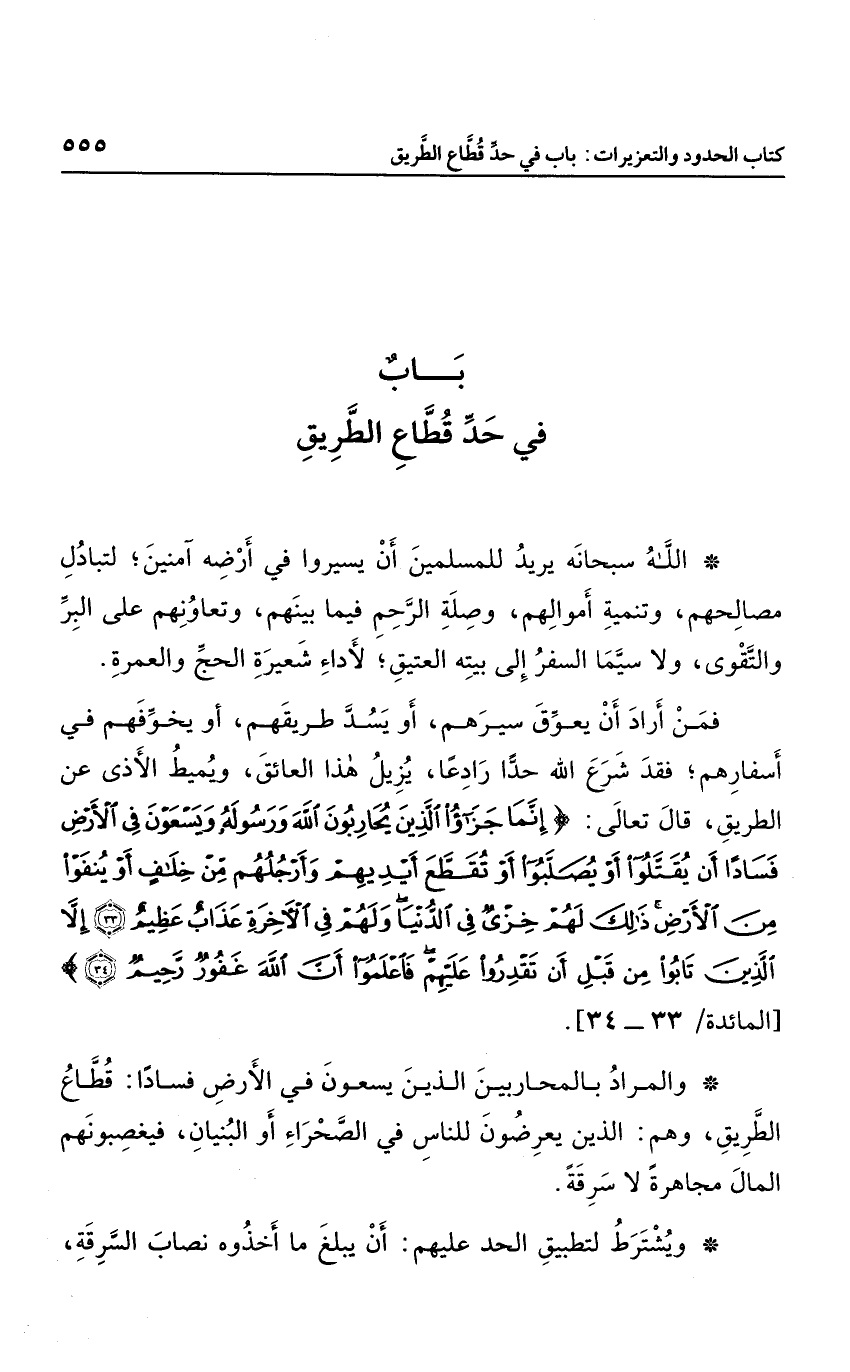 كتاب الحدود والتعزيرات: باب في حدِّ قُطَّاع الطَّريق ٥٥٥
بَــــابٌ
في حَدِّ قُطَّاعِ الطَّرِيقِ
* اللَّهُ سبحانَه يريدُ للمسلمينَ أَنْ يسيروا في أَرْضِه آمنينَ؛ لتبادُلِ
مصالِحهم، وتنميةِ أَموالِهم، وصِلَةِ الرَّحِمِ فيما بينَهم، وتعاوُنِهم على البِرِّ
والتَّقْوى، ولا سيَّمَا السفرُ إِلى بيتِه العتيقِ؛ لأَداءِ شَعيرَةِ الحجِّ والعمرةِ.
فمَـنْ أَرادَ أَنْ يعـوِّقَ سيـرَهـم، أَو يَسُـدَّ طـريقَهـم، أو يخـوِّفَهـم فـي
أَسفارِهم؛ فقدَ شَرَعَ الله حدًّا رَادِعًا، يُزِيلُ هٰذا العائقَ، ويُميطُ الأَذى عن
الطريقِ، قالَ تعالَى: ﴿ إِنَّمَا جَزَٰٓؤُا۟ ٱلَّذِينَ يُحَارِبُونَ ٱللَّهَ وَرَسُولَهُۥ وَيَسْعَوْنَ فِى ٱلْأَرْضِ
فَسَادًا أَن يُقَتَّلُوٓا۟ أَوْ يُصَلَّبُوٓا۟ أَوْ تُقَطَّعَ أَيْدِيهِمْ وَأَرْجُلُهُم مِّنْ خِلَٰفٍ أَوْ يُنفَوْا۟
مِنَ ٱلْأَرْضِ ۚ ذَٰلِكَ لَهُمْ خِزْىٌ فِى ٱلدُّنْيَا ۖ وَلَهُمْ فِى ٱلْءَاخِرَةِ عَذَابٌ عَظِيمٌ ٣٣ إِلَّا
ٱلَّذِينَ تَابُوا۟ مِن قَبْلِ أَن تَقْدِرُوا۟ عَلَيْهِمْ ۖ فَٱعْلَمُوٓا۟ أَنَّ ٱللَّهَ غَفُورٌ رَّحِيمٌ ٣٤ ﴾
[المائدة/ ٣٣ ــ ٣٤].
* والمـرادُ بـالمحـاربيـنَ الـذيـنَ يسعـونَ فـي الأَرضِ فسـادًا: قُطَّـاعُ
الطَّرِيقِ، وهم: الذين يعرِضُونَ للناسِ في الصَّحْرَاءِ أَو البُنيانِ، فيغصِبونَهم
المالَ مجاهرةً لا سَرِقَةً.
* ويُشْتَرَطُ لتطبيقِ الحد عليهم: أَنْ يبلغَ ما أَخذُوه نصابَ السَّرِقَةِ،